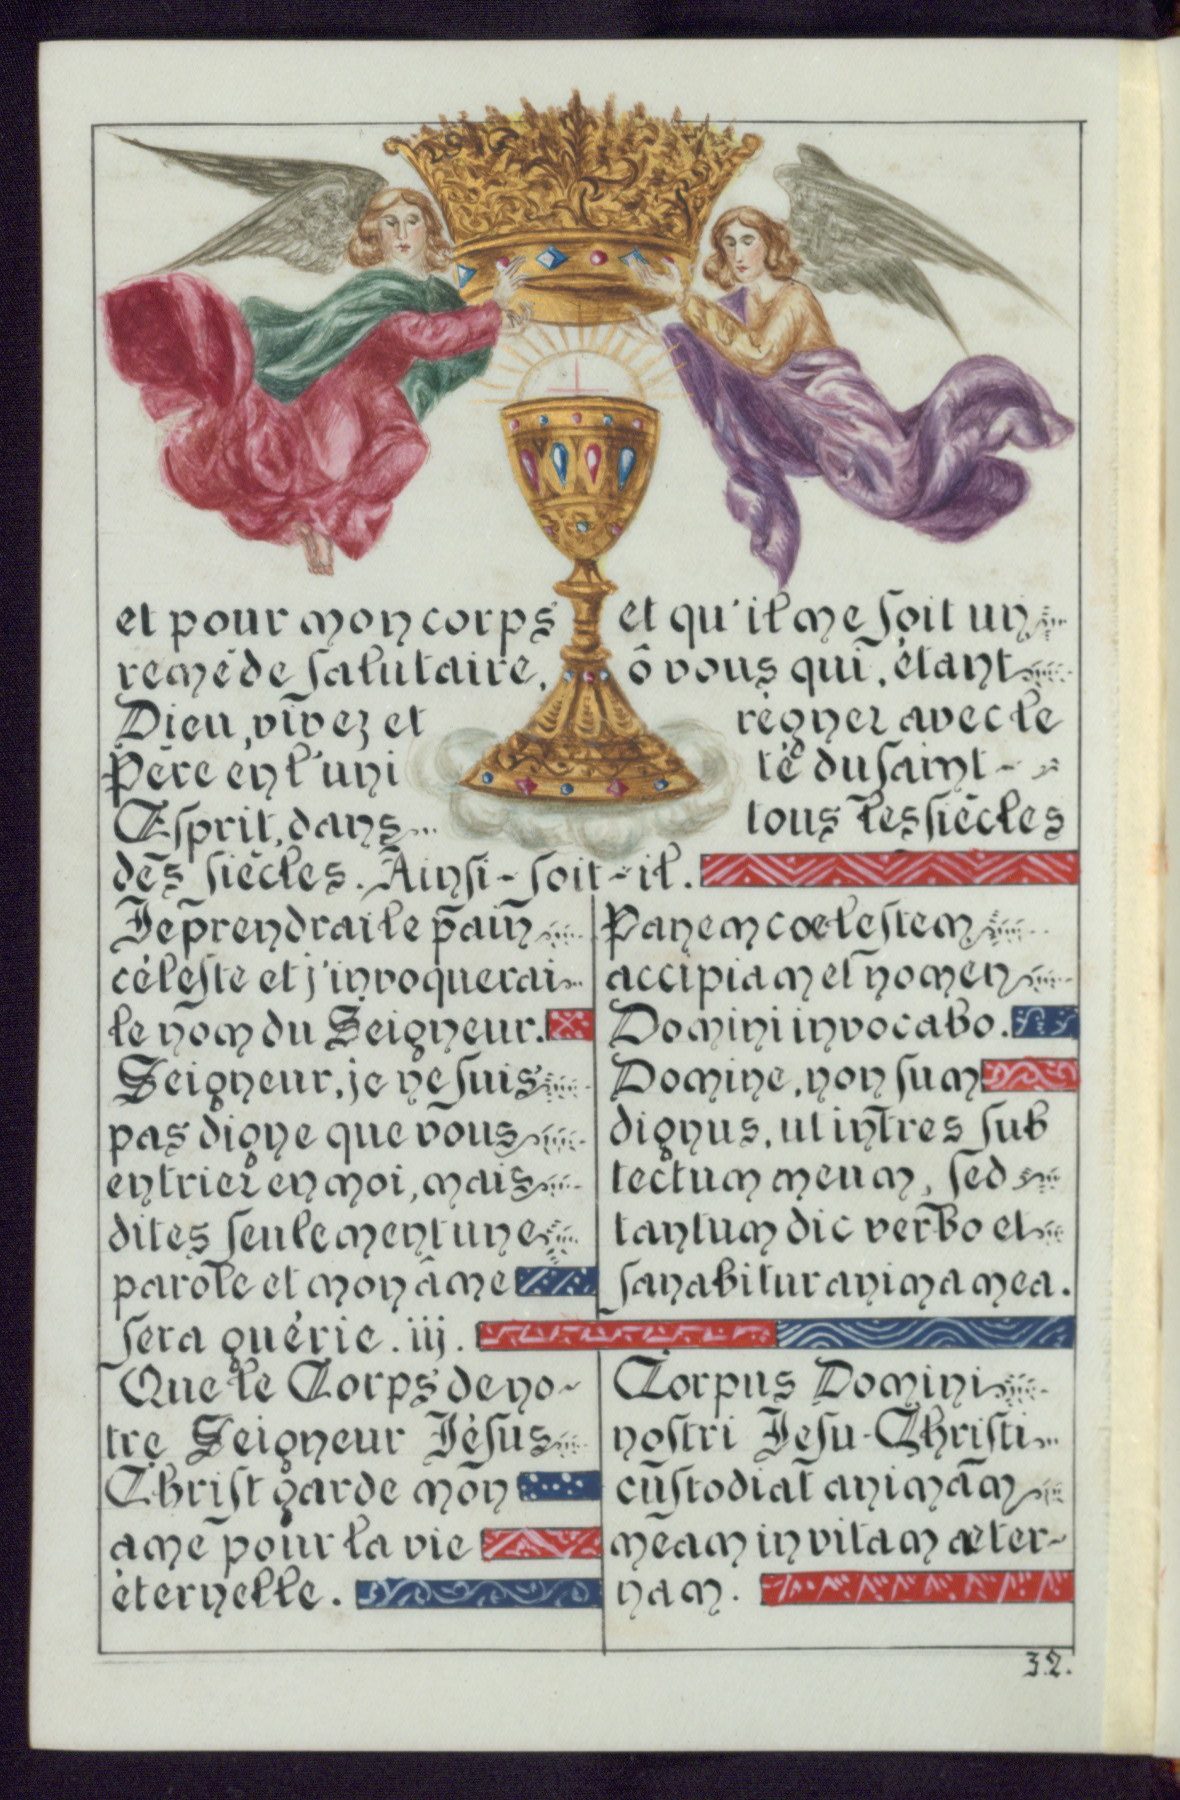 et pour mon corps et qu'il me soit un
reméde salutaire, ô vous qui, étant
Dieu, vivez et régnez avec le
Père en l'uni té du saint -
Esprit, dans tous les siècles
des siècles. Ainsi-soit-il.
Je prendrai le pain
céleste et j'invoquerai
le nom du Seigneur.
Seigneur, je ne suis
pas digne que vous
entriez en moi, mais
dites seulement une
parole et mon âme
sera guérie. iij.
Panem cœlestem
accipiam et nomen
Domini invocabo.
Domine, non sum
dignus, ut intres sub
tectum meum, sed
tantum dic verbo et
sanabitur anima mea.
Que le Corps de no-
tre Seigneur Jésus
Christ garde mon
ame pour la vie
éternelle.
Corpus Domini
nostri Jesu-Christi
custodiat animam
meam in vitam æter-
nam.
32.